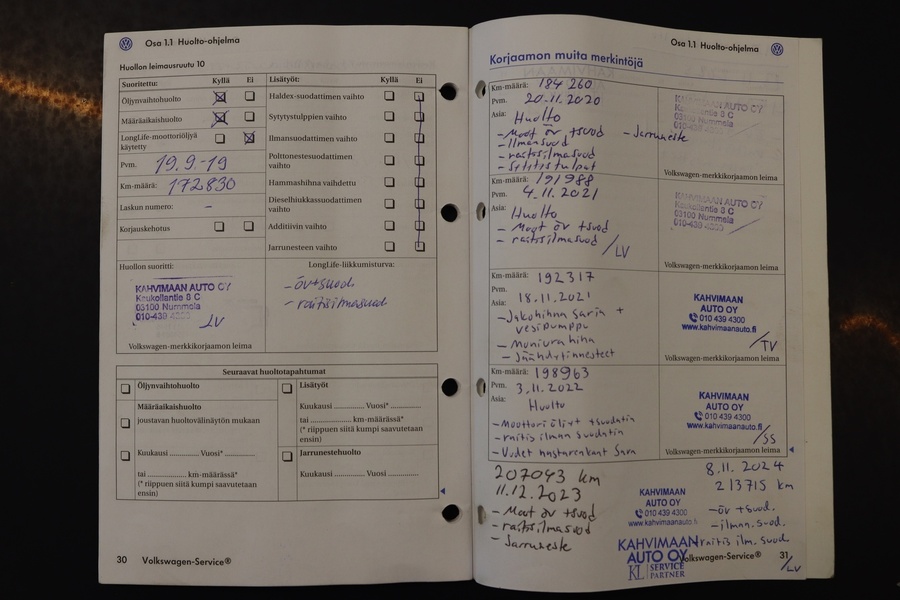 Osa 1.1 Huolto-ohjelma
Huollon leimausruutu 10
Suoritettu: Kyllä Ei
Öljynvaihtohuolto
Määräaikaishuolto
LongLife-moottoriöljyä
käytetty
Pvm. 19.9-19
Km-määrä: 172830
Laskun numero: -
Korjauskehotus
Lisätyöt: Kyllä Ei
Haldex-suodattimen vaihto
Sytytystulppien vaihto
Ilmansuodattimen vaihto
Polttonestesuodattimen
vaihto
Hammashihna vaihdettu
Dieselhiukkassuodattimen
vaihto
Additiivin vaihto
Jarrunesteen vaihto
Huollon suoritti:
KAHVIMAAN AUTO OY
Kaukoilantie 8 C
03100 Nummela
010-439
LV
Volkswagen-merkkikorjaamon leima
LongLife-liikkumisturva:
-öv+suod
-raitisilmasuod
Seuraavat huoltotapahtumat
Öljynvaihtohuolto
Määräaikaishuolto
joustavan huoltovälinäytön mukaan
Kuukausi ............ Vuosi* ............
tai ............ km-määrässä*
(* riippuen siitä kumpi saavutetaan
ensin)
Lisätyöt
Kuukausi ............ Vuosi* ............
tai ............ km-määrässä*
(* riippuen siitä kumpi saavutetaan
ensin)
Jarrunestehuolto
Kuukausi ............ Vuosi ............
30 Volkswagen-Service®
Osa 1.1 Huolto-ohjelma
Korjaamon muita merkintöjä
Km-määrä: 184 260
Pvm. 20.11.2020
Asia: Huolto
-Moot öv +suod -Jarruneste
-Ilmansuod
-raitisilmasuod
-Sytytystulpat
KAHVIMAAN AUTO OY
Kaukoilantie 8 C
03100 Nummela
010-439
Volkswagen-merkkikorjaamon leima
Km-määrä: 191988
Pvm. 4.11.2021
Asia: Huolto
-Moot öv +suod
-raitisilmasuod
/LV
KAHVIMAAN AUTO OY
Kaukoilantie 8 C
03100 Nummela
Volkswagen-merkkikorjaamon leima
Km-määrä: 192317
Pvm. 18.11.2021
Asia: -Jakohihna sarja +
vesipumppu
-Moniurahihna
-Jäähdytinnesteet
KAHVIMAAN
AUTO OY
010 439 4300
www.kahvimaanauto.fi
/TV
Volkswagen-merkkikorjaamon leima
Km-määrä: 198963
Pvm. 3.11.2022
Asia: Huolto
-Moottori öljyt +suodatin
-raitis ilman suodatin
-Uudet nastarenkaat Sarja
KAHVIMAAN
AUTO OY
010 439 4300
www.kahvimaanauto.fi
/SS
Volkswagen-merkkikorjaamon leima
207043 km
11.12.2023
-Moot öv +suod
-raitisilmasuod
-Jarruneste
KAHVIMAAN
AUTO OY
010 439 4300
www.kahvimaanauto.fi
KAHVIMAAN
AUTO OY
KL SERVICE
PARTNER
8.11.2024
213715 km
-öv +suod.
-ilman.suod.
-raitis ilm.suod
/LV
Volkswagen-Service® 31